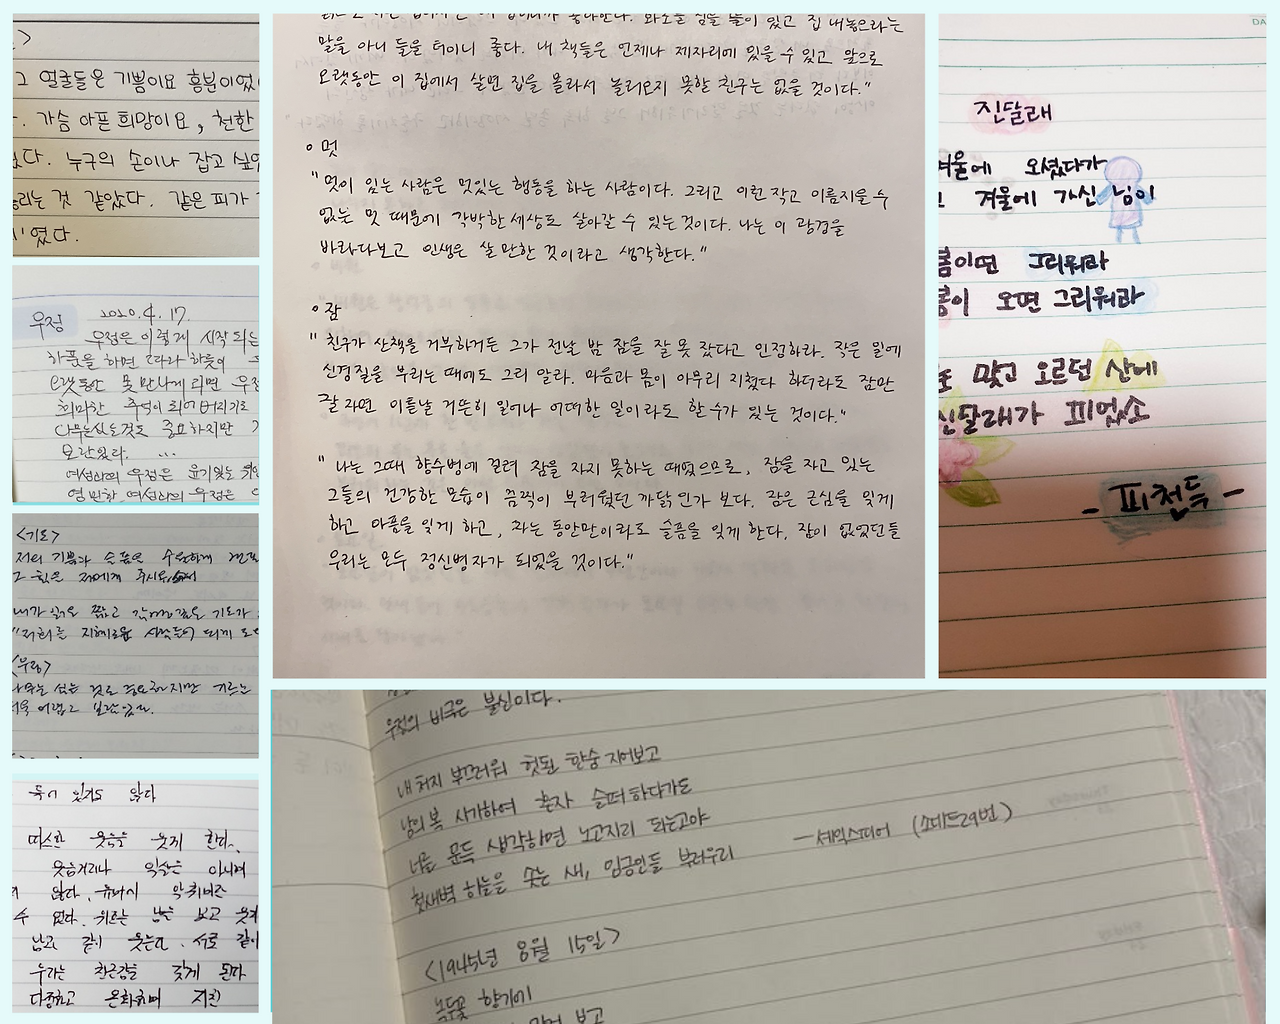 그 얼굴들은 기쁨이요 흥분이었
가슴 아픈 희망이요, 천한
었다. 누구의 손이나 잡고 싶었
리는 것 같았다. 같은 피가
이었다.
우정 2020.4.17.
우정은 이렇게 시작 되는
하품을 하면 따라 하듯이
오랫동안 못 만나게 되면 우정
희미한 추억이 되어버리기로
나무는 심는 것도 중요하지만
보람있다. ...
여성과의 우정은 윤기있는
연한 여성과의 우정은
<기도>
저의 기쁨과 슬픔을 수월하게 견딜
그 힘을 저에게 주시옵소서
내가 읽은 짧고 감명깊은 기도가
"저희를 지혜로운 사람들이 되게 도
<우정>
나무는 심는 것도 중요하지만 기르는
더욱 어렵고 보람있다.
독이 있지도 않다
따스한 웃음을 웃게 한다.
웃음거리나 익살은 아니며
않다. 유머의 악취미는
수 없다. 위트는 남을 보고 웃지
남과 같이 웃는다. 서로 같이
우리는 친근감을 갖게 된다
다정하고 온화하며 지친
말을 아니 들을 터이니 좋다. 내 책들은 언제나 제자리에 있을 수 있고 앞으로
오랫동안 이 집에서 살면 집을 몰라서 놀러오지 못할 친구는 없을 것이다."
◦ 멋
"멋이 있는 사람은 멋있는 행동을 하는 사람이다. 그리고 이런 작고 이름지을 수
없는 멋 때문에 각박한 세상도 살아갈 수 있는 것이다. 나는 이 광경을
바라다보고 인생은 살 만한 것이라고 생각한다."
◦ 잠
" 친구가 산책을 거부하거든 그가 전날 밤 잠을 잘 못 잤다고 인정하라. 작은 일에
신경질을 부리는 때에도 그리 알라. 마음과 몸이 아무리 지쳤다 하더라도 잠만
잘 자면 이튿날 거뜬히 일어나 어떠한 일이라도 할 수가 있는 것이다."
" 나는 그때 향수병에 걸려 잠을 자지 못하는 때였으므로, 잠을 자고 있는
그들의 건강한 모습이 끔찍이 부러웠던 까닭인가 보다. 잠은 근심을 잊게
하고 아픔을 잊게 하고, 자는 동안만이라도 슬픔을 잊게 한다. 잠이 없었던들
우리는 모두 정신병자가 되었을 것이다."
진달래
겨울에 오셨다가
겨울에 가신 님이
봄이면 그리워라
봄이 오면 그리워라
맞고 오르던 산에
진달래가 피었소
- 피천득 -
우정의 비극은 불신이다.
내 처지 부끄러워 헛된 한숨 지어보고
남의 복 시기하여 혼자 슬퍼하다가도
너를 문득 생각하면 노고지리 되는고야
첫새벽 하늘을 솟는 새, 임금인들 부러우리
-셰익스피어 (소네트29번)
<1945년 8월 15일>
녹두꽃 향기에